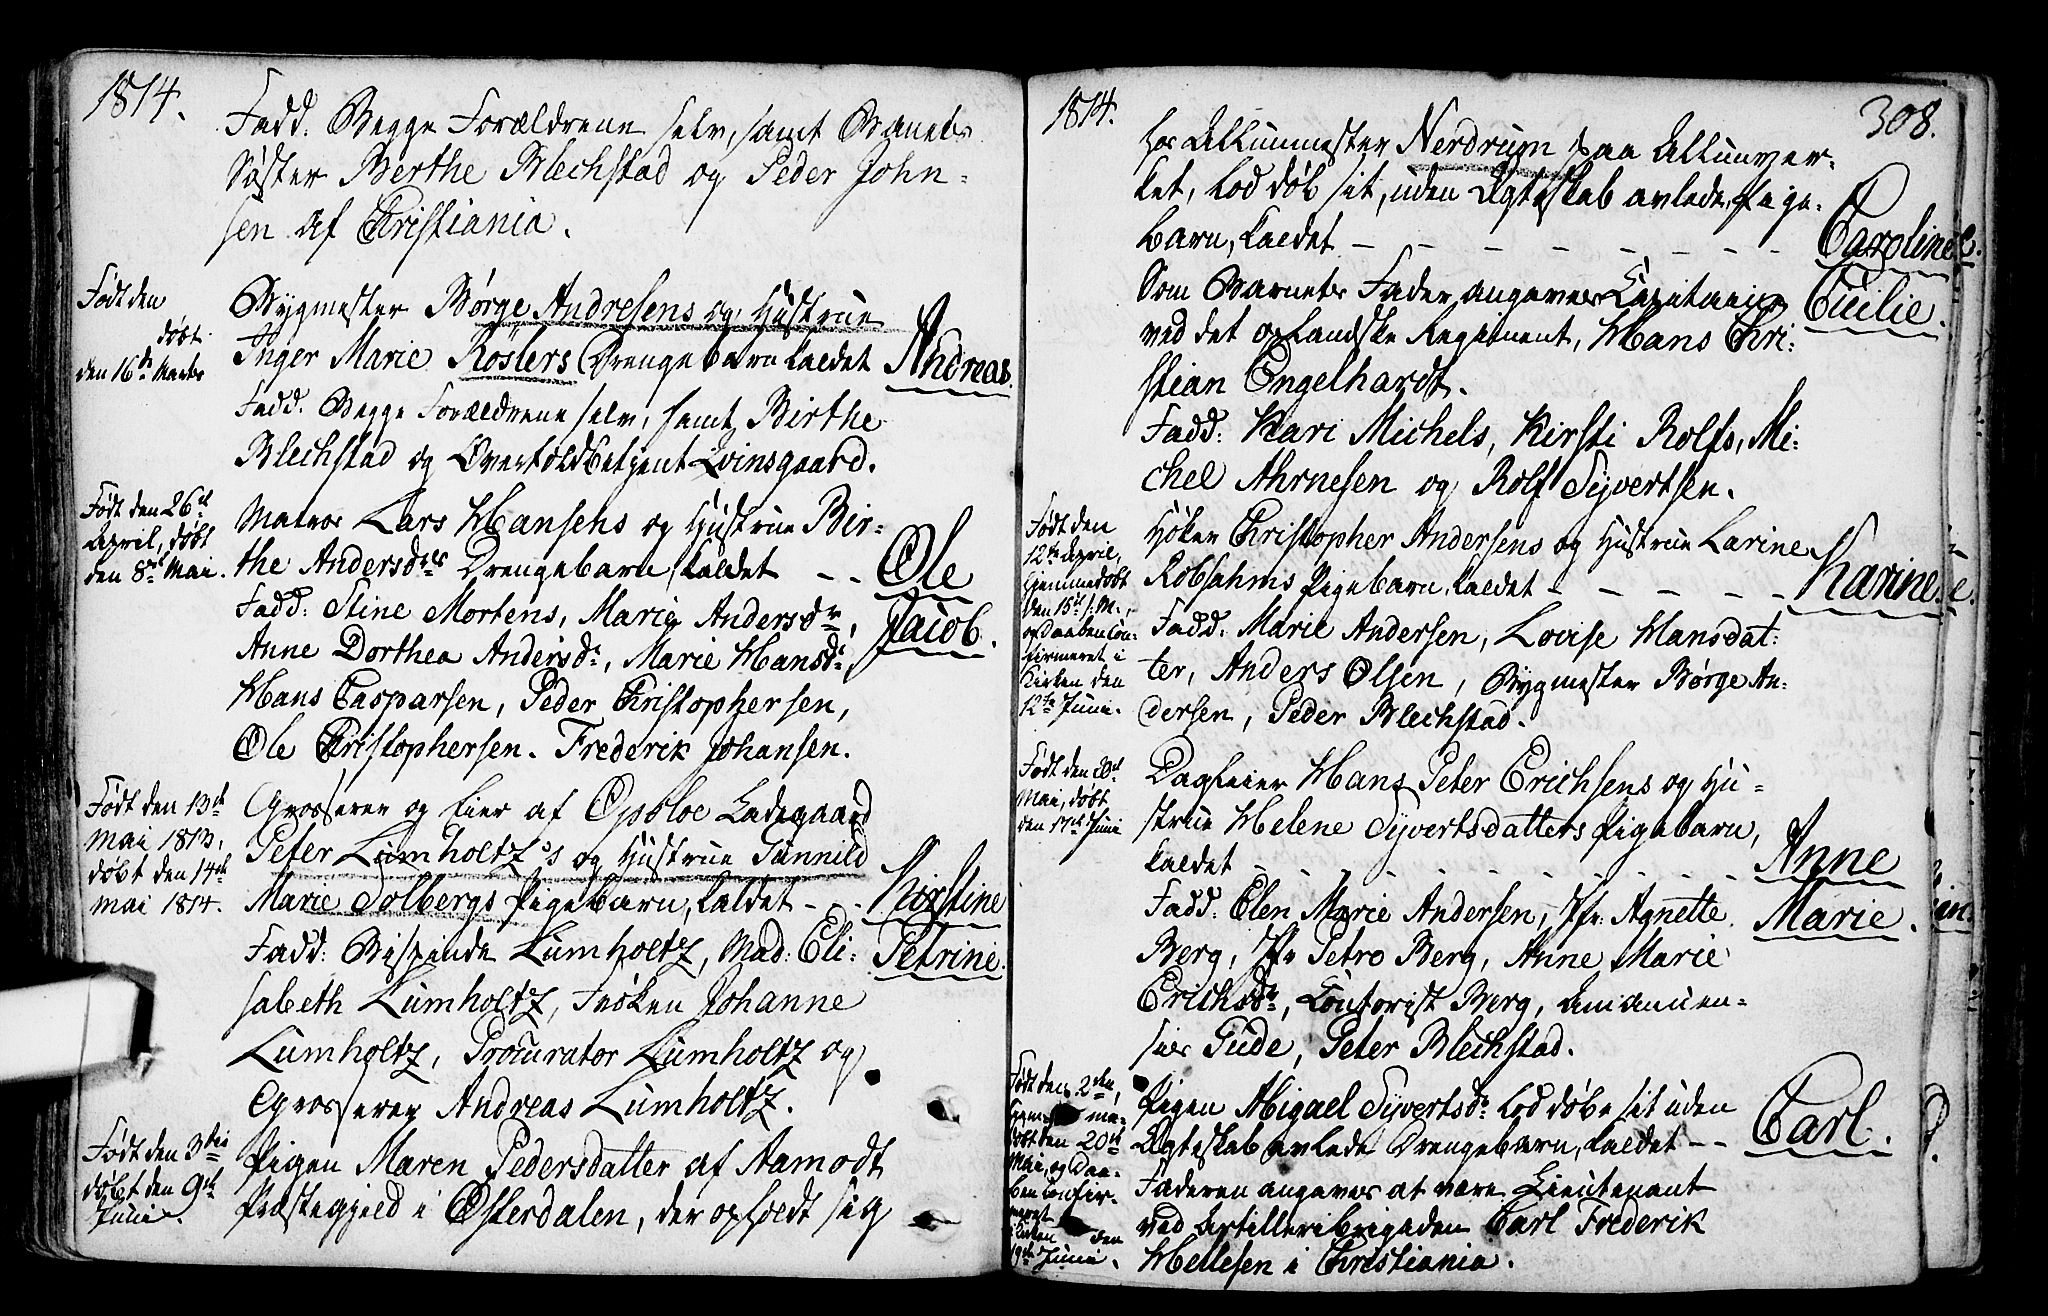 1814.
Fadd. Begge Forældrene selv, samt Barnets
Søster Berthe Blechstad og Peder John-
sen af Christiania.
Født den
døbt
den 16de Marts
Bygmester Børge Andresens og Hustrue
Inger Marie Röslers Drengebarn kaldet
Andreas.
Fadd. Begge Forældrene selv, samt Birthe
Blechstad og Overtoldbetjent Evinsgaard.
Født den 26de
April, døbt
den 8de Mai.
Matros Lars Hansens og Hustrue Bir-
the Andersdrs Drengebarn, kaldet - -
Ole
Jacob.
Fadd: Stine Mortens, Marie Andersdr,
Anne Dorthea Andersdr, Marie Hansdr,
Hans Casparsen, Peder Christophersen,
Ole Christophersen. Frederik Johansen.
Født den 13de
Mai 1813,
døbt den 14de
Mai 1814.
Grosserer og Eier af Opsloe Ladegaard
Peter Lumholtz's og Hustrue Gunnild
Marie Solbergs Pigebarn, kaldet - -
Kirstine
Petrine.
Fadd: Bispinde Lumholtz, Mad: Eli-
sabeth Lumholtz, Frøken Johanne
Lumholtz, Procurator Lumholtz og
Grosserer Andreas Lumholtz.
Født den 3die
døbt den 9de
Junii.
Pigen Maren Pedersdatter af Aamodt
Præstegjeld i Østerdalen, der opholdt sig
1814.
308.
hos Allunmester Nerdrum paa Allunver-
ket, lod døb sit, uden Ægteskab avlede, Pige-
barn, kaldet - - - - - - - -
Caroline
Cicilie.
Som Barnets Fader, angaves Capitain
ved det oplandske Regiment, Hans Chri-
stian Engelhardt.
Fadd: Kari Michels, Kirsti Rolfs, Mi-
chel Ahrnesen og Rolf Syvertsen.
Født den
12te April,
hjemmedøbt
den 15de s. M.,
og Daaben con-
firmeret i
Kirken den
12te Junii.
Høker Christopher Andersens og Hustrue Larine
Robsahms Pigebarn, kaldet - - - - -
Karine.
Fadd. Marie Andersen, Lovise Hansdat-
ter, Anders Olsen, Bygmester Børge An-
dersen, Peder Blechstad.
Født den
Mai, døbt
den 17de Junii
Dagleier Hans Peter Erichsens og Hu-
strue Helene Syvertsdatters Pigebarn,
kaldet - - - - - - - -
Anne
Marie.
Fadd: Elen Marie Andersen, Jfr. Agnette
Berg, Jfr Petro Berg, Anne Marie
Erichsdr, Contorist Berg, Amanuen-
sis Gude, Peter Blechstad.
Født den 2den,
ma-
døbt den 20de
Mai, og Daa-
ben confir-
meret
Kirken den
19de Junii.
Pigen Abigael Syvertsdr lod døbe sit uden
Ægteskab avlede Drengebarn, kaldet - -
Carl.
Faderen angaves at være Lieutenant
ved Artilleribrigaden Carl Frederik
Hellesen i Christiania.